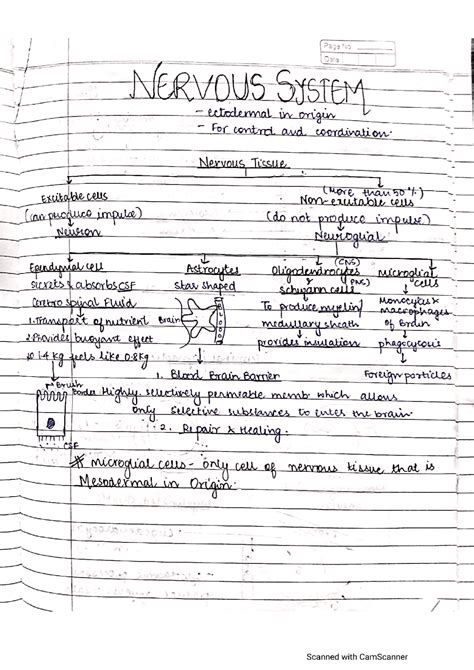 Page No.
Date
NERVOUS SYSTEM
- ectodermal in origin
- For control and coordination.
Nervous Tissue
Excitable cells
(can produce impulse)
Neuron
(More than 50%)
Non-excitable cells
(do not produce impulse)
Neuroglial
Ependymal cell
Secrets & absorbs CSF
Cerebro Spinal Fluid
1. Transport of nutrient
2. Provides buoyant effect
1.4 kg feels like 0.8 kg
Brush
Border
CSF
Astrocytes
Star shaped
Brain
1. Blood Brain Barrier
Highly selectively permeable memb which allows
only selective substances to enter the brain.
2. Repair & Healing.
(CNS)
Oligodendrocytes
(PNS)
Schwann cells
To produce myelin/
medullary sheath
provides insulation
Microglial
cells
Monocytes &
macrophages
of Brain
phagocytosis
Foreign particles
* Microglial cells - only cell of nervous tissue that is
Mesodermal in Origin.
Scanned with CamScanner